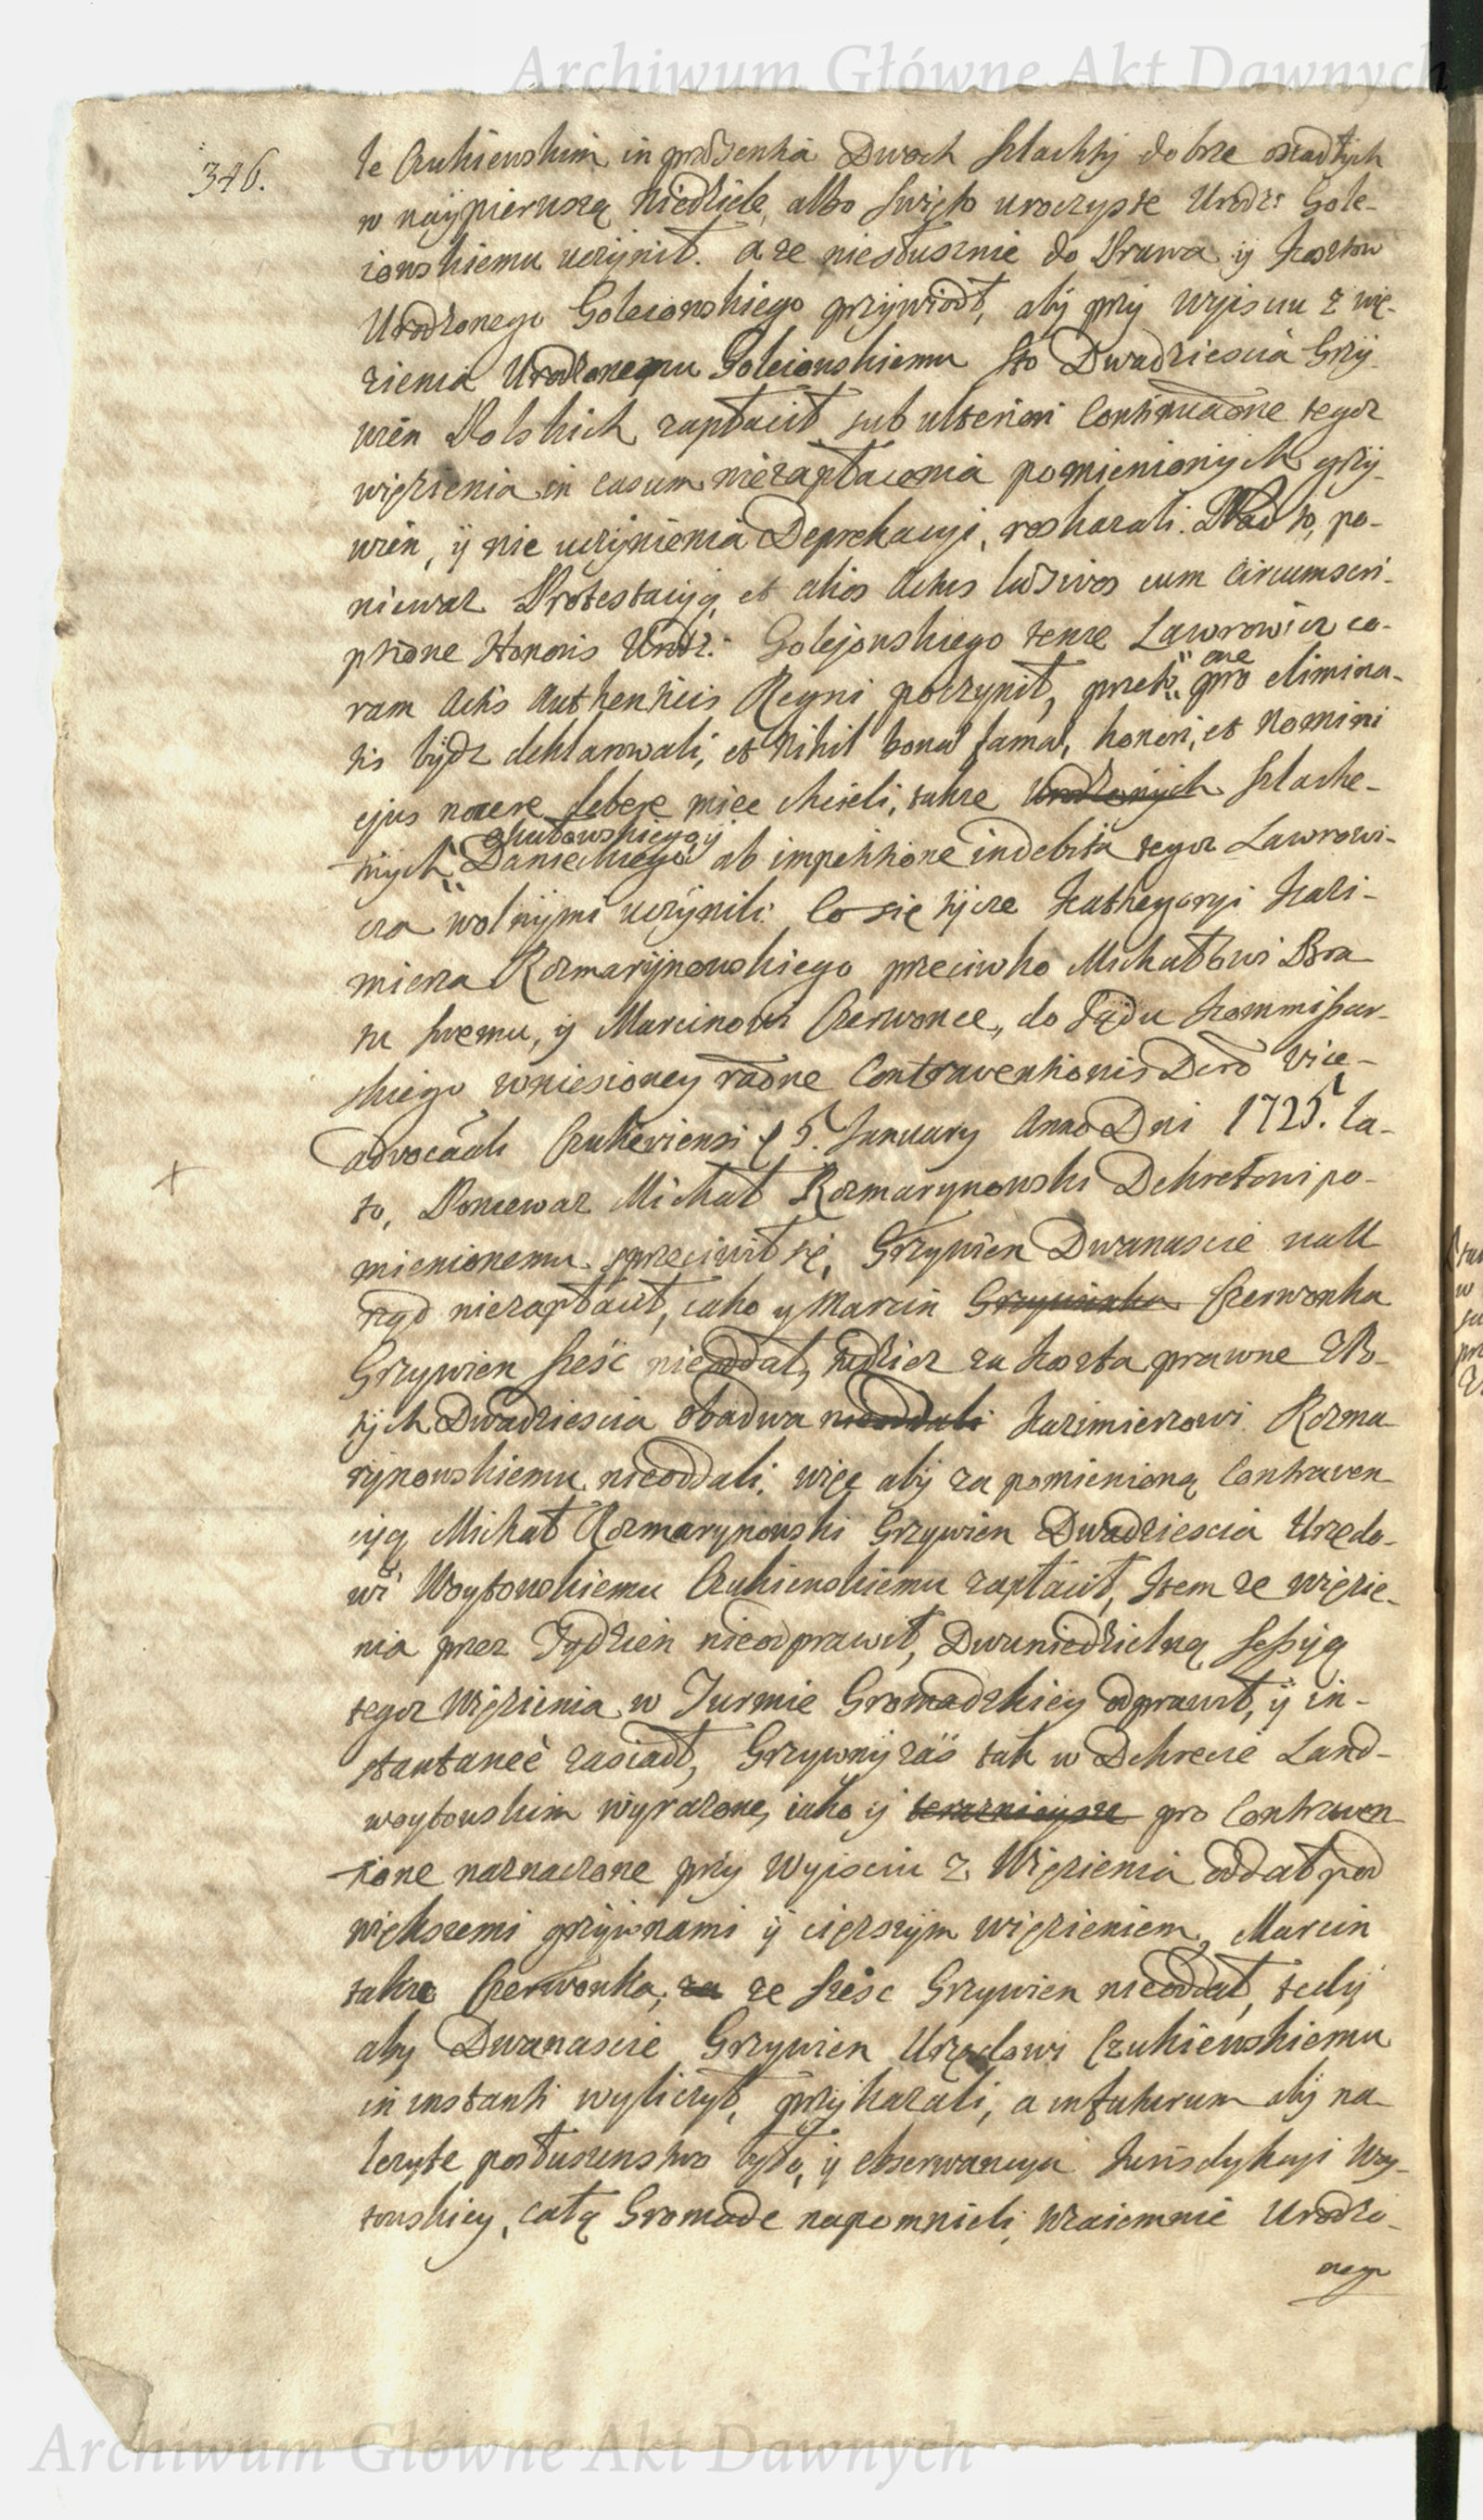 Archiwum Główne Akt Dawnych
346.
le Czukiewskim in præsentia Dwoch Szlachty dobrze osiadłych
w naypierwszą Niedzielę, albo Swięto uroczyste Urodz: Gole-
iowskiemu uczynił. a ze niesłusznie do Prawa ÿ kosztow
Urodzonego Goleiowskiego przywiodł, aby przy wyisciu z wię-
zienia Urodzonemu Goleiowskiemu sto Dwadziescia Grzy-
wien Polskich zapłacił sub ulteriori Continuaõne tegoz
więzienia in casum niezapłacenia pomienionych grzy-
wien, ÿ nie uczynienia Deprekacyi, roskazali. Nad to, po-
niewaz Protestacyą et alios Actus læsivos cum circumscri-
ptione Honoris Urodz: Golejowskiego tenze Lawrowicz co-
ram Actis Authenticis Regni poczynił, przeto one pro elimina-
tis bydz deklarowali, et nihil bonæ famæ, honori, et Nomini
ejus nocere debere miec chcieli, takze Urodzonych Szlache-
tnych Danieckiego ab impetitione indebita tegoz Lawrowi-
cza wolnymi uczynili. Co się tycze Kathegoryi Kazi-
mierza Rozmarynowskiego przeciwko Michałowi Bra-
tu swemu, ÿ Marcinowi Czerwonce, do Sądu Kommissar-
skiego wniesioney raõne Contraventionis Decr̃o Vice-
advocãli Czukieviensi 5. January Anno Dni 1725. la-
to, Poniewaz Michał Rozmarynowski Dekretowi po-
mienionemu sprzeciwił się, Grzywien Dwanascie na U
rząd niezapłacił, iako y Marcin Grzywinka Czerwonka
Grzywien szesc nieoddał, tudziez za koszta prawne Zło-
tych Dwadziescia obadwa nieoddali Kazimierzowi Rozma
rynowskiemu nieoddali: więc aby za pomienioną Contraven
cyą Michał Rozmarynowski Grzywien Dwadziescia Urzędo-
wi Woytowskiemu Czukiewskiemu zapłacił, Item ze więzie-
nia przez Tydzien nieodprawił, Dwuniedzielną Sessyą
tegoz Więzienia w Turmie Gromadzkiey odprawił, ÿ in-
stantaneè zasiadł, Grzywny zaś tak w Dekrecie Land-
woytowskim wyrazone, iako ÿ terazniejsze pro Contraven
tione naznaczone przy Wyisciu z Więzienia oddał pod
większemi grzywnami ÿ cięzszym więzieniem, Marcin
takze Czerwonka, za ze szesc Grzywien nieoddał, tedy
aby Dwanascie Grzywien Urzędowi Czukiewskiemu
in instanti wyliczył, przykazali, a in futurum aby na-
lezyte posłuszenstwo było, ÿ obserwancya Jurisdykcyi Woy-
towskiey, całą Gromadę napomnieli, Wzaiemnie Urodzo-
nego
Archiwum Główne Akt Dawnych